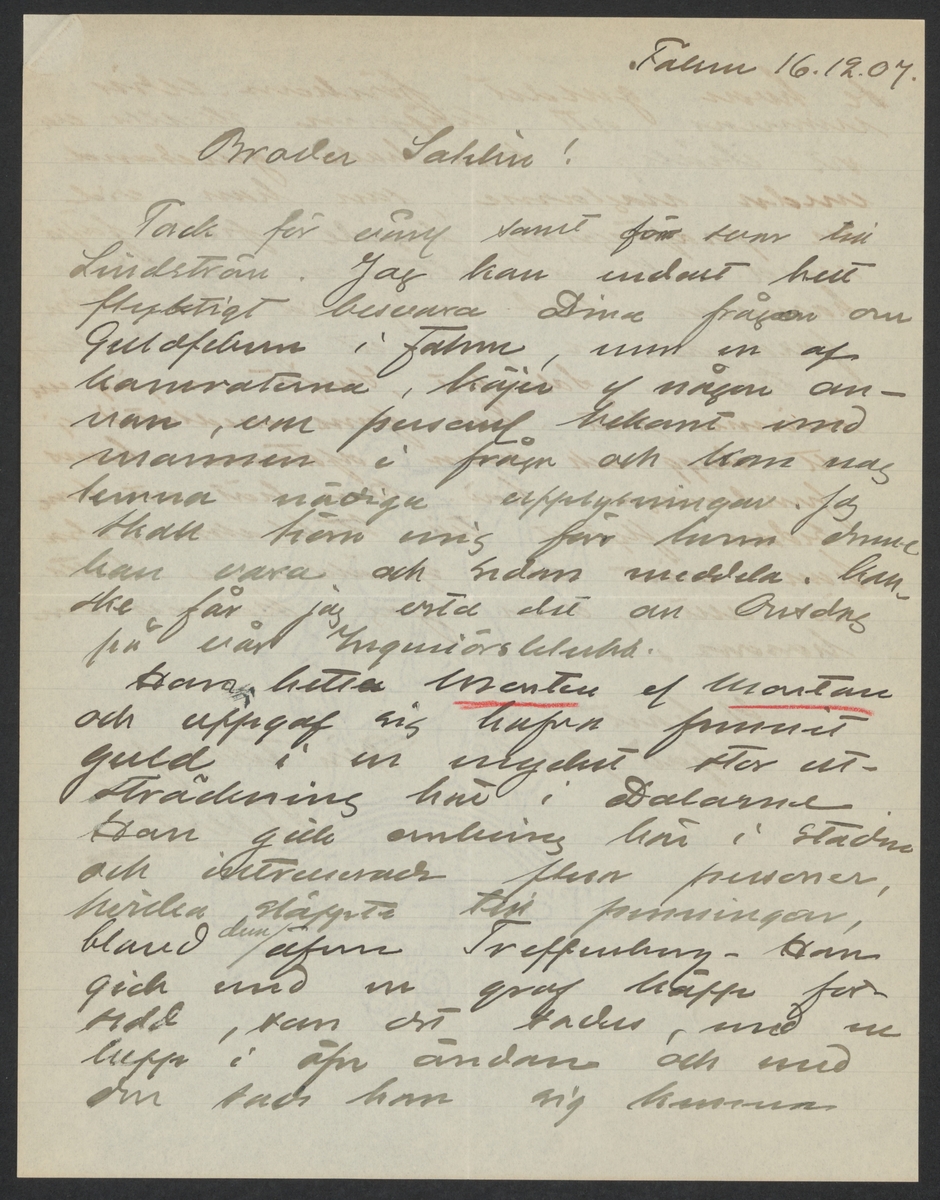 Falun 16.12.07.
Broder Sahlin!
Tack för visit samt för svar till
Lindström. Jag kan endast helt
flyktigt besvara Dina frågor om
Guldfebern i Falun, men en af
kamraterna, Kajer el någon an-
nan, var personl bekant med
mannen i fråga och kan nog
lemna nödiga upplysningar. Jag
skall höra mig för hvem denne
kan vara och sedan meddela. Kan-
ske får jag veta det om Onsdag
på vår Ingeniörsklubb.
Han hette Morten el Mortan
och uppgaf sig hafva funnit
guld i en mycket stor ut-
sträckning här i Dalarne
Han gick omkring här i staden
och intresserade flera personer,
hvilka släppte till penningar,
bland dem äfven Treffenberg. Han
gick med en graf käpp för-
sedd, som det sades, med en
kopp i öfre ändan och med
den sade han sig kunna